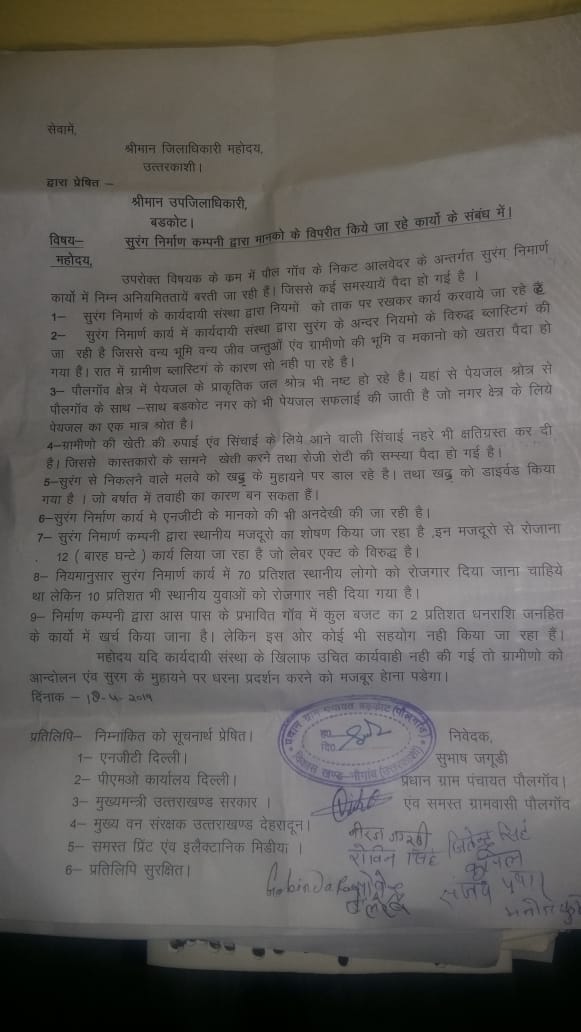 सेवामें,
श्रीमान जिलाधिकारी महोदय,
उत्तरकाशी।
द्वारा प्रेषित –
श्रीमान उपजिलाधिकारी,
बडकोट।
विषय– सुरंग निर्माण कम्पनी द्वारा मानको के विपरीत किये जा रहे कार्यो के संबंध में।
महोदय,
उपरोक्त विषयक के कम में पौल गॉव के निकट आलवेदर के अन्तर्गत सुरंग निर्माण
कार्यो में निम्न अनियमिततायें बरती जा रही हैं। जिससे कई समस्यायें पैदा हो गई है ।
1– सुरंग निर्माण के कार्यदायी संस्था द्वारा नियमों को ताक पर रखकर कार्य करवाये जा रहे हैं
2– सुरंग निर्माण कार्य में कार्यदायी संस्था द्वारा सुरंग के अन्दर नियमो के विरुद्ध ब्लास्टिगं की
जा रही है जिससे वन्य भूमि वन्य जीव जन्तुओं एंव ग्रामीणो की भूमि व मकानो को खतरा पैदा हो
गया है। रात में ग्रामीण ब्लास्टिगं के कारण सो नही पा रहे है।
3– पौलगॉव क्षेत्र में पेयजल के प्राकृतिक जल श्रोत्र भी नष्ट हो रहे है। यहां से पेयजल श्रोत्र से
पौलगॉव के साथ –साथ बडकोट नगर को भी पेयजल सफलाई की जाती है जो नगर क्षेत्र के लिये
पेयजल का एक मात्र श्रोत है।
4–ग्रामीणो की खेती की रुपाई एंव सिंचाई के लिये आने वाली सिंचाई नहरे भी क्षतिग्रस्त कर दी
है। जिससे कास्तकारो के सामने खेती करने तथा रोजी रोटी की सम्स्या पैदा हो गई है।
5–सुरंग से निकलने वाले मलवे को खढ्ढ के मुहायने पर डाल रहे है। तथा खढ्ढ को डाईवर्ड किया
गया है । जो बर्षात में तवाही का कारण बन सकता हैं।
6–सुरंग निर्माण कार्य मे एनजीटी के मानको की भी अनदेखी की जा रही है।
7– सुरंग निर्माण कम्पनी द्वारा स्थानीय मजदूरो का शोषण किया जा रहा है ,इन मजदूरो से रोजाना
12 ( बारह घन्टे ) कार्य लिया जा रहा है जो लेबर एक्ट के विरुद्ध है।
8– नियमानुसार सुरंग निर्माण कार्य में 70 प्रतिशत स्थानीय लोगो को रोजगार दिया जाना चाहिये
था लेकिन 10 प्रतिशत भी स्थानीय युवाओं को रोजगार नही दिया गया है।
9– निर्माण कम्पनी द्वारा आस पास के प्रभावित गॉव में कुल बजट का 2 प्रतिशत धनराशि जनहित
के कार्यो में खर्च किया जाना है। लेकिन इस ओर कोई भी सहयोग नही किया जा रहा हैं।
महोदय यदि कार्यदायी संस्था के खिलाफ उचित कार्यवाही नही की गई तो ग्रामीणो को
आन्दोलन एंव सुरग के मुहायने पर धरना प्रदर्शन करने को मजबूर होना पडेगा।
दिनाक –
प्रतिलिपि– निम्नांकित को सूचनार्थ प्रेषित।
निवेदक,
1– एनजीटी दिल्ली।
सुभाष जगूडी
2– पीएमओ कार्यालय दिल्ली।
प्रधान ग्राम पंचायत पौलगॉव।
3– मुख्यमन्त्री उत्तराखण्ड सरकार ।
एंव समस्त ग्रामवासी पौलगॉव
4– मुख्य वन संरक्षक उत्तराखण्ड देहरादून।
5– समस्त प्रिंट एंव इलैक्टानिक मिडीया ।
6– प्रतिलिपि सुरक्षित।
प्रधान ग्राम पंचायत बडकोट (पौलगॉव)
ह०
दि०
विकास खण्ड-नौगांव (उत्तरकाशी)
नीरज जगूडी
जितेन्द्र सिंह
रोविन सिंह
कपिल
संजय
मनोज